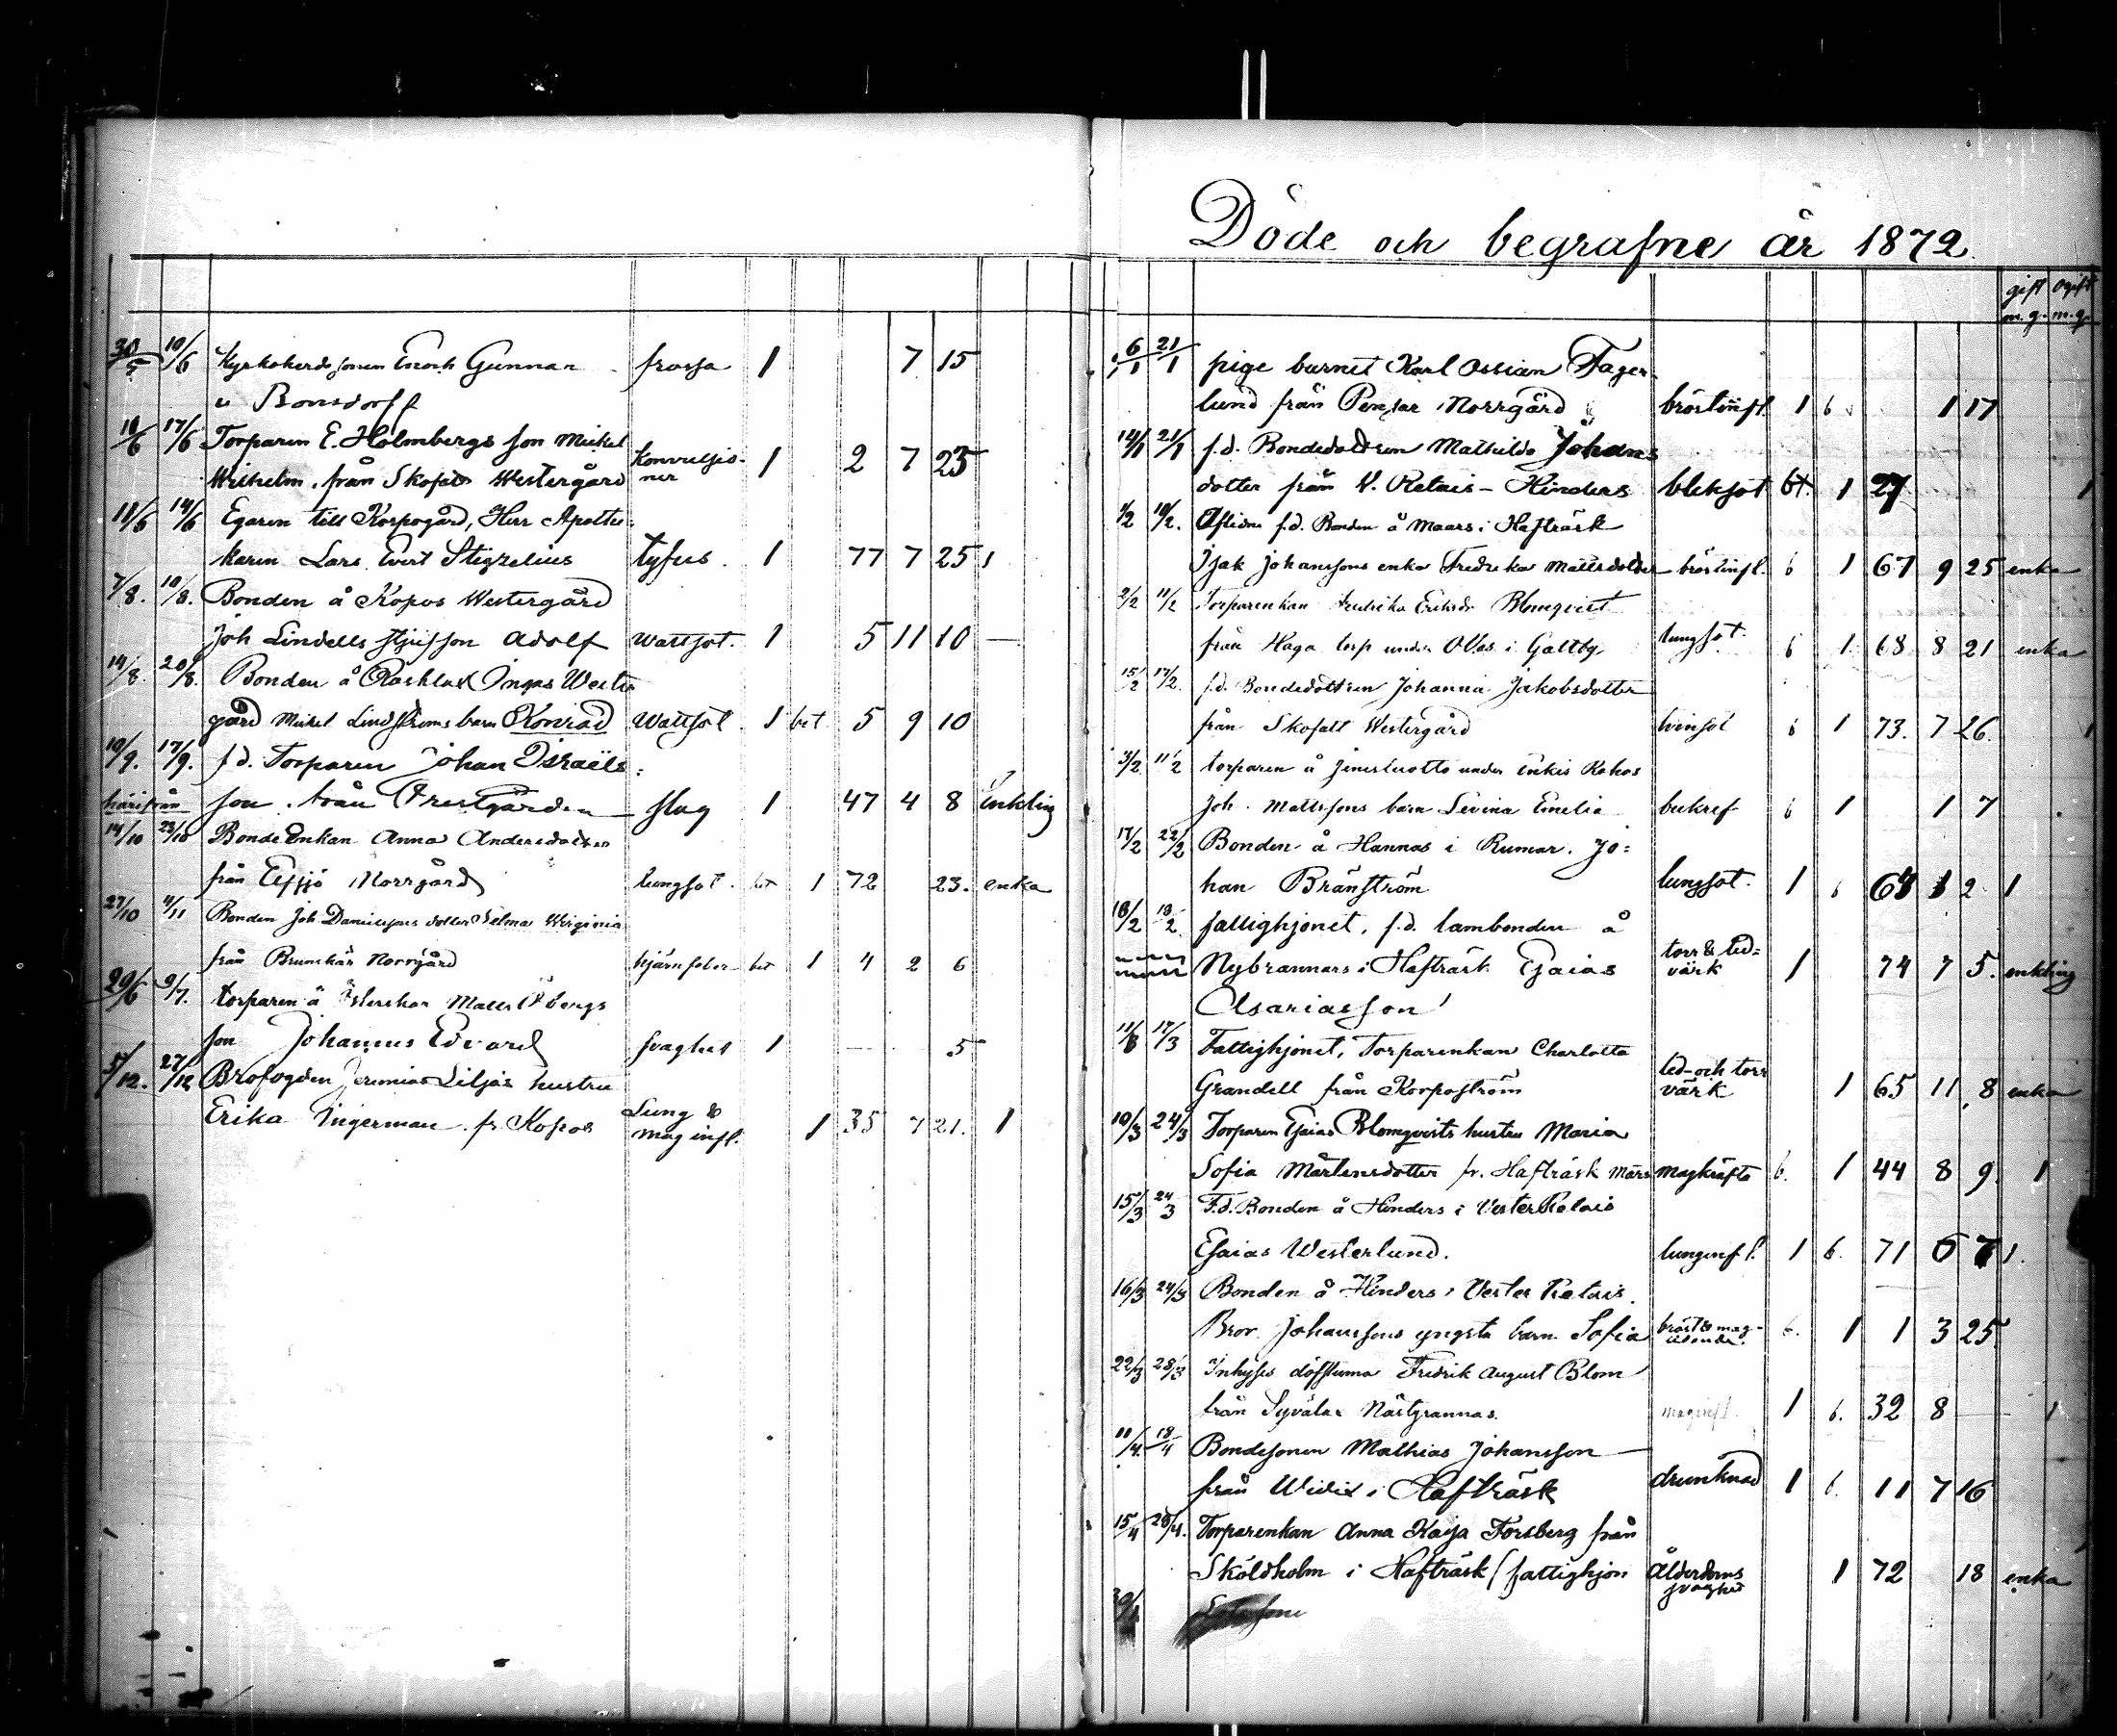 30/5 10/6 Kyrkoherds sonen Enoch Gunnar frossa 1 7 15
v Bonsdorff
11/6 17/6 Torparen E. Holmbergs son Mickel
Wilhelm, från Skofalt Westergård konvulsioner 1 2 7 23
11/6 14/6 Egaren till Korpogård, Herr Apothe-
karen Lars Evert Stigzelius tyfus. 1 77 7 25 1
7/8. 10/8. Bonden å Kopos Westergård
Joh Lindells styfson Adolf wattsot. 1 5 11 10 —
14/8. 20/8. Bonden å Westergård
gård Mickel Lindströms barn Konrad wattsot 1 bet 5 9 10
10/9. 17/9. f.d. Torparen Johan Israëls=
härifrån son från Prestgården slag 1 47 4 8 Enkling
14/10 23/10 Bonde Enkan Anna Andersdotter
från Norrgård lungsot. bet 1 72 23. enka
27/10 4/11 Bonden Joh Danielssons dotter Selma Wirginia
från Brunskär Norrgård hjärnfeber bet 1 4 2 6
29/6 9/7. torparen å Österskär Matts Öbergs
son Johannes Edvard svaghet 1 — 5
5/12. 27/12 Brofogden Jeremias Liljas hustru
Erika Ingerman fr. Kopos Lung & mag infl. 1 35 7 21. 1
Döde och begrafne år 1872
gift ogift
m. q. m. q.
6/1 21/1 pige barnet Karl Ossian Fager-
lund från Pensar Norrgård bröstinfl. 1 b 1 17
14/1 21/1 f.d. Bondedottren Mathilda Johans
dotter från V. Retais - Hinders bleksot bt. 1 27 1
1/2 10/2. Aflidne f.d. Bonden å Maars i Hafträsk
Isak Johanssons enka Fredrika Mattsdotter bröstinfl. b 1 67 9 25 enka
2/2 11/2 Torparenkan Fredrika Eriksdr Blomqvist
från Haga torp under i Galtby lungsot. b 1 68 8 21 enka
15/2 17/2. f.d. Bondedottren Johanna Jakobsdotter
från Skofalt Westergård tvinsot b 1 73. 7 26. 1
3/2 11/2 torparen å under Enkis Kohos
Joh. Mattssons barn Levina Emelia bukref b 1 1 7
17/2 22/2 Bonden å Hannas i Rumar. Jo=
han Bränström lungsot. 1 b 1 2 1
18/2 fattighjonet, f.d. lambonden å
Nybrannars i Hafträsk Esaias torr & led=värk 1 74 7 5. enkling
Asariasson
11/3 17/3 Fattighjonet, Torparenkan Charlotta
Grandell från Korpoström led- och torr värk 1 65 11 8 enka
10/3 24/3 Torparen Esaias Blomqvists hustru Maria
Sofia Mårtensdotter fr. Hafträsk Mårs magkräfta b. 1 44 8 9 1
15/3 24/3 F.d. Bonden å Hinders i Vester Retais
Esaias Westerlund. lunginfl. 1 b. 71 1.
16/3 24/3 Bonden å Hinders i Vester Retais.
Bror Johanssons yngsta barn Sofia bröst & mag- b. 1 1 3 25.
22/3 28/3 Inhyses döfstumma Fredrik August Blom
från Syvälax Näsgrannas. maginfl. 1 b. 32 8 — 1
11/4. 18/4 Bondesonen Mathias Johansson
från i Hafträsk drunknad 1 b. 11 7 16
15/4 28/4. Torparenkan Anna Kajsa Forsberg från
Sköldholm i Hafträsk (fattighjon Ålderdoms svaghet 1 72 18 enka